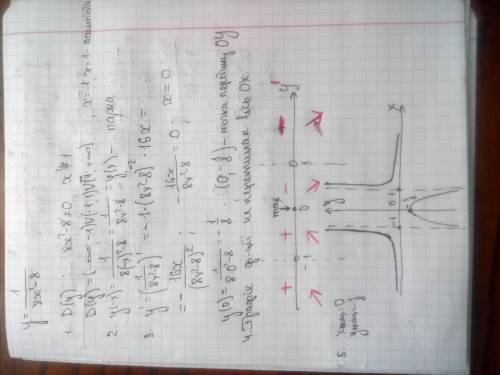 y = 1/(8x²-8)
1. D(y): 8x²-8≠0, x²≠1
D(y)=(-∞;-1)∪(-1;1)∪(1;+∞) , x=-1, x=1 - асимптоти
2. y(-x) = 1/(8(-x)²-8) = 1/(8x²-8) = y(x) - парна
3. y' = (1/(8x²-8))' = -1·(8x²-8)⁻²·16x =
= -16x/(8x²-8)² ; -16x/(8x²-8) = 0, x=0
y(0) = 1/(8·0²-8) = -1/8 . (0;-1/8) - точка перетину OY
4. Графік ф-ції не перетинає вісь OX.
max
+ + - - y'
-1 0 1
5. xmax=0
ymax=-1/8
y
-1 0 1 x